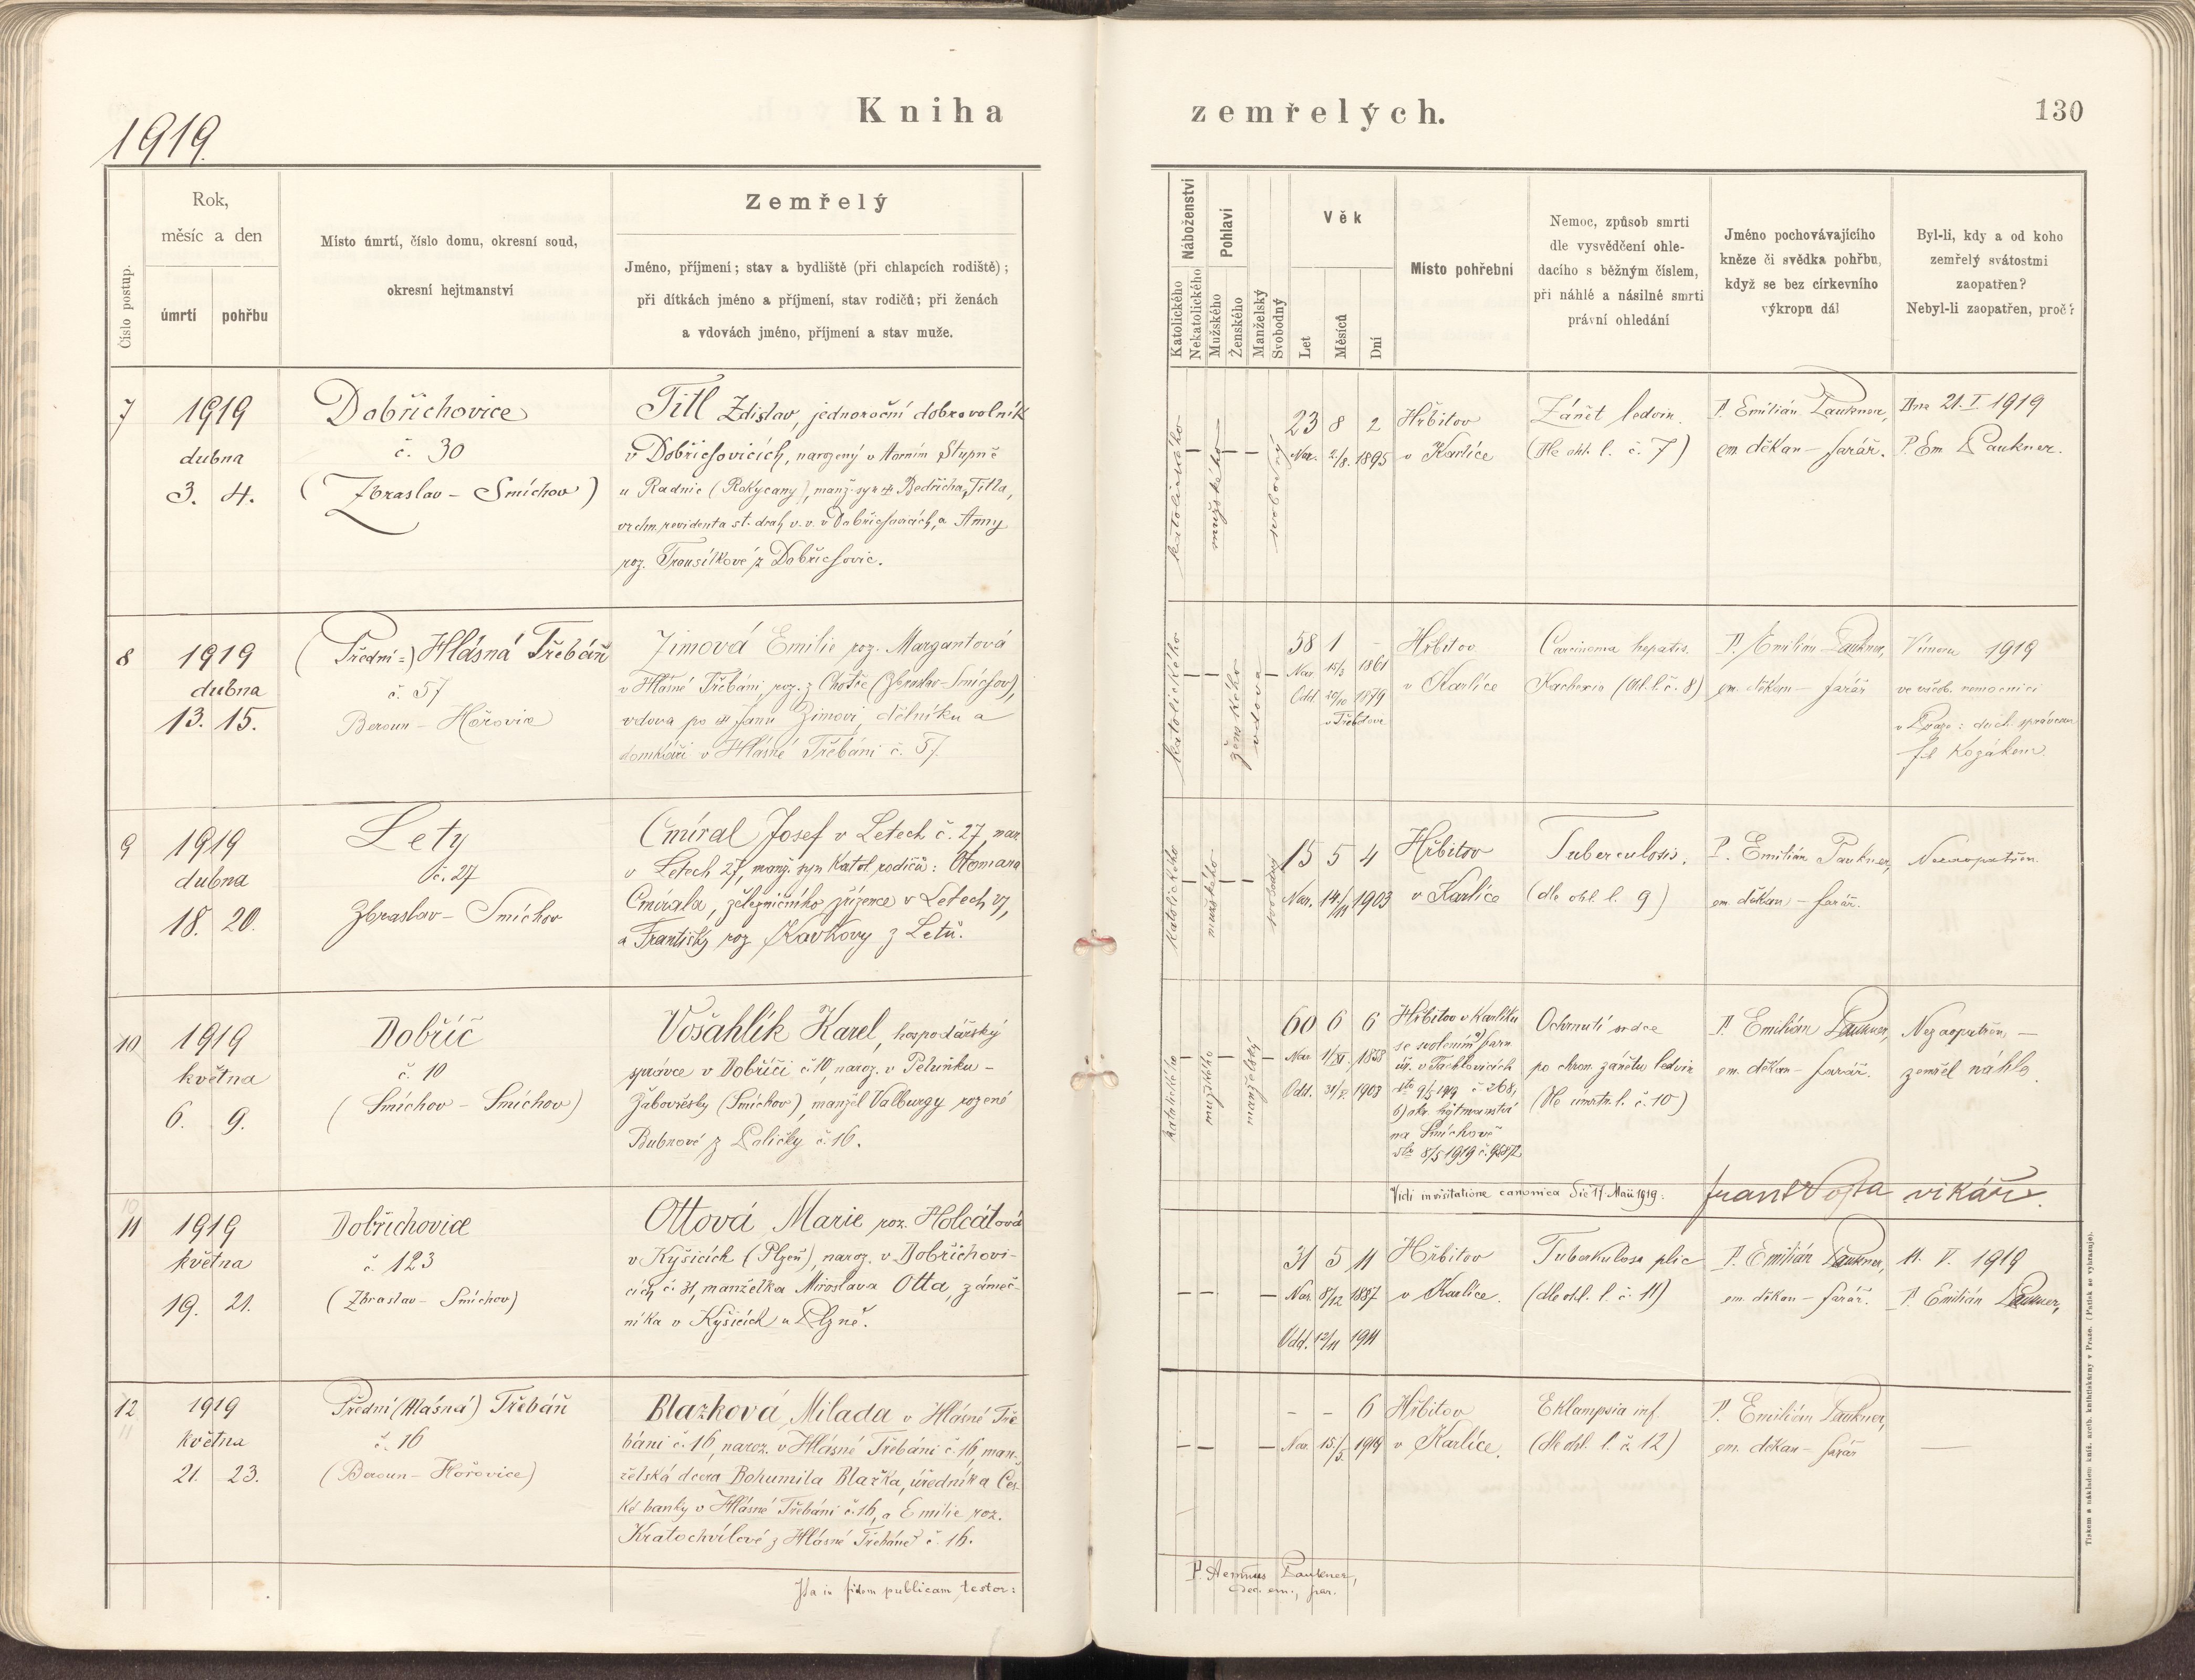 Kniha
zemřelých.
130
1919.
Číslo postup.
Rok,
měsíc a den
úmrtí
pohřbu
Místo úmrtí, číslo domu, okresní soud,
okresní hejtmanství
Zemřelý
Jméno, příjmení; stav a bydliště (při chlapcích rodiště);
při dítkách jméno a příjmení, stav rodičů; při ženách
a vdovách jméno, příjmení a stav muže.
Náboženství
Katolického
Nekatolického
Pohlaví
Mužského
Ženského
Manželský
Svobodný
Věk
Let
Měsíců
Dní
Místo pohřební
Nemoc, způsob smrti
dle vysvědčení ohle-
dacího s běžným číslem,
při náhlé a násilné smrti
právní ohledání
Jméno pochovávajícího
kněze či svědka pohřbu,
když se bez církevního
výkropu dál
Byl-li, kdy a od koho
zemřelý svátostmi
zaopatřen?
Nebyl-li zaopatřen, proč?
7
1919
dubna
3. 4.
Dobřichovice
č. 30
(Zbraslav – Smíchov)
Titl Zdislav, jednoroční dobrovolník
v Dobřichovicích, narozený v Horním Stupně
u Radnic (Rokycany), manž. syn Bedřicha Titla,
vrchn. revidenta st. drah v. v. v Dobřichovicích, a Anny
roz. Trousílkové z Dobřichovic.
katolického
mužského
svobodný
23 8 2
Nar. 2/8. 1895
Hřbitov
v Karlíce
Zánět ledvin.
(Dle ohl. l. č. 7)
P. Emilián Paukner,
em. děkan – farář.
Dne 21. I. 1919
P. Em. Paukner.
8
1919
dubna
13. 15.
(Přední =) Hlásná Třebáň
č. 57
Beroun – Hořovice
Zimová Emilie roz. Margantová
v Hlásné Třebáni, roz. z Chotče (Zbraslav – Smíchov),
vdova po Janu Zimovi, dělníku a
domkáři v Hlásné Třebáni č. 57.
katolického
ženského
vdova
58 1 –
Nar. 15/3 1861
Odd. 20/10 1879
v Třebotově
Hřbitov
v Karlíce
Carcinoma hepatis.
Kachexia (Ohl. l. č. 8)
P. Emilián Paukner,
em. děkan – farář
V únoru 1919
ve všeob. nemocnici
v Praze: duch. správcem
Kozákem.
9
1919
dubna
18. 20.
Lety
č. 27
Zbraslav – Smíchov
Cmíral Josef v Letech č. 27, nar.
v Letech 27, manž. syn katol. rodičů: Otomara
Cmírala, železničního zřízence v Letech 27,
a Františky roz. Kavkovy z Letů.
katolického
mužského
svobodný
15 5 4
Nar. 14/11 1903
Hřbitov
v Karlíce
Tuberculosis.
(dle ohl. l. 9)
P. Emilián Paukner,
em. děkan – farář.
Nezaopatřen.
10
1919
května
6. 9.
Dobříč
č. 10
(Smíchov – Smíchov)
Vošahlík Karel, hospodářský
správce v Dobříči č. 10, naroz. v Peluňku –
Žabovřesky (Smíchov), manžel Valburgy rozené
Bubnové z Poličky č. 16.
katolického
mužského
manželský
60 6 6
Nar. 1/XI. 1858
Odd. 31/8 1903
Hřbitov v Karlíku
se svolením a) farn.
úř. v Tachlovicích
dto 9/5 1919 č. 268,
b) okr. hejtmanství
na Smíchově
dto 8/5 1919
Ochrnutí srdce
po chron. zánětu ledvin
(Dle úmrtn. l. č. 10)
P. Emilián Paukner,
em. děkan – farář.
Nezaopatřen, –
zemřel náhle.
Vidi in visitatione canonica die 17. Maii 1919.
Frant Vojta vikář.
10
11
1919
května
19. 21.
Dobřichovice
č. 123
(Zbraslav – Smíchov)
Ottová Marie roz. Holcátová
v Kyšicích (Plzeň), naroz. v Dobřichovi-
cích č. 31, manželka Miroslava Otta, zámeč-
níka v Kyšicích u Plzně.
31 5 11
Nar. 8/12 1887
Odd. 12/11 1911
Hřbitov
v Karlíce.
Tuberkulosa plic
(dle ohl. l. č. 11)
P. Emilián Paukner,
em. děkan – farář.
11. V. 1919
P. Emilián Paukner,
12
11
1919
května
21. 23.
Přední (Hlásná) Třebáň
č. 16
(Beroun – Hořovice)
Blažková Milada v Hlásné Tře-
báni č. 16, naroz. v Hlásné Třebáni č. 16, man-
želská dcera Bohumila Blažka, úředníka Čes-
ké banky v Hlásné Třebáni č. 16, a Emilie roz.
Kratochvílové z Hlásné Třebáně č. 16.
– – 6
Nar. 15./5. 1919
Hřbitov
v Karlíce.
Eklampsia inf.
(dle ohl. l. č. 12)
P. Emilián Paukner,
em. děkan – farář
—
Ita in fidem publicam testor:
P. Aemilius Paukner,
Dec. em., par.
Tiskem a nákladem kníž. arcib. knihtiskárny v Praze. (Patisk se vyhrazuje).